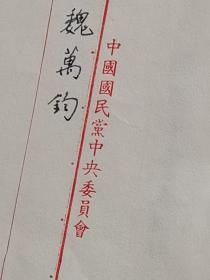 中國國民黨中央委員會
魏萬鈞